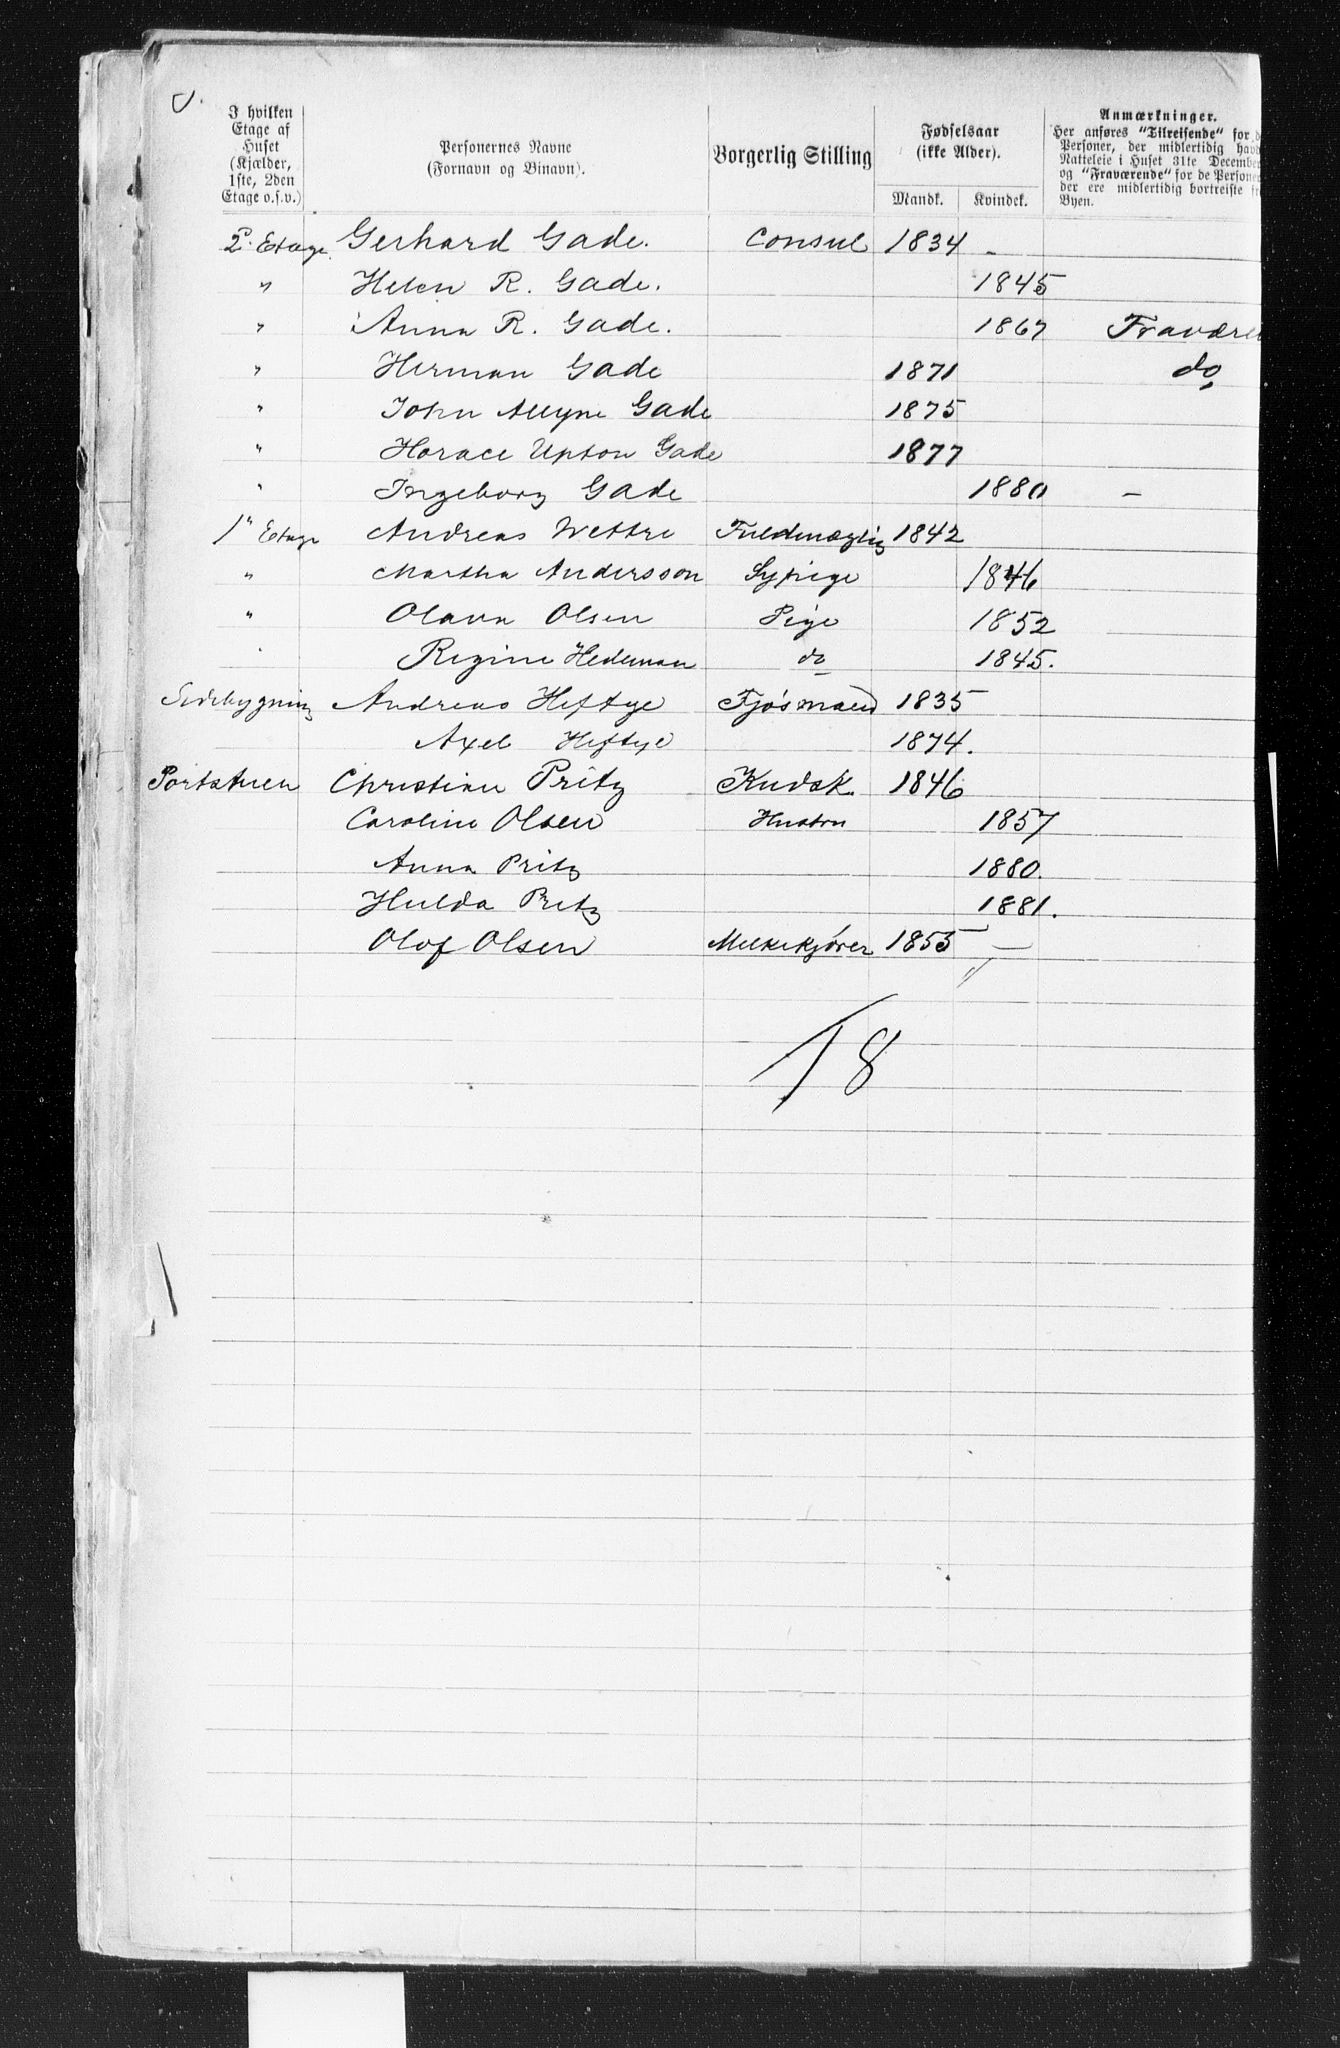 I hvilken Etage af Huset (Kjælder, 1ste, 2den Etage o.s.v.) | Personernes Navne (Fornavn og Binavn). | Borgerlig Stilling | Fødselsaar (ikke Alder). Mandk. Kvindek. | Anmærkninger. Her anføres "Tilreisende" for de Personer, der midlertidig havde Natteleie i Huset 31te December og "Fraværende" for de Personer der ere midlertidig bortreiste fra Byen.
2. Etage Gerhard Gade. Consul 1834 -
" Helen R. Gade. 1845
" Anna R. Gade. 1867 Fravære
" Herman Gade 1871 do
" John Allyne Gade 1875
" Horace Upton Gade 1877
" Ingeborg Gade 1880 -
1" Etage Andreas Wettre Fuldmægtig 1842
" Martha Andersson Sypige 1846
" Olava Olsen Pige 1852
" Regine Hedeman do 1845.
Sidebygning Andreas Heftye Fjøsmand 1835
Axel Heftye 1874.
Portstuen Christian Pritz Kudsk 1846
Caroline Olsen Hustru 1857
Anna Pritz 1880.
Hulda Pritz 1881.
Olof Olsen Melkekjører 1855 -
18